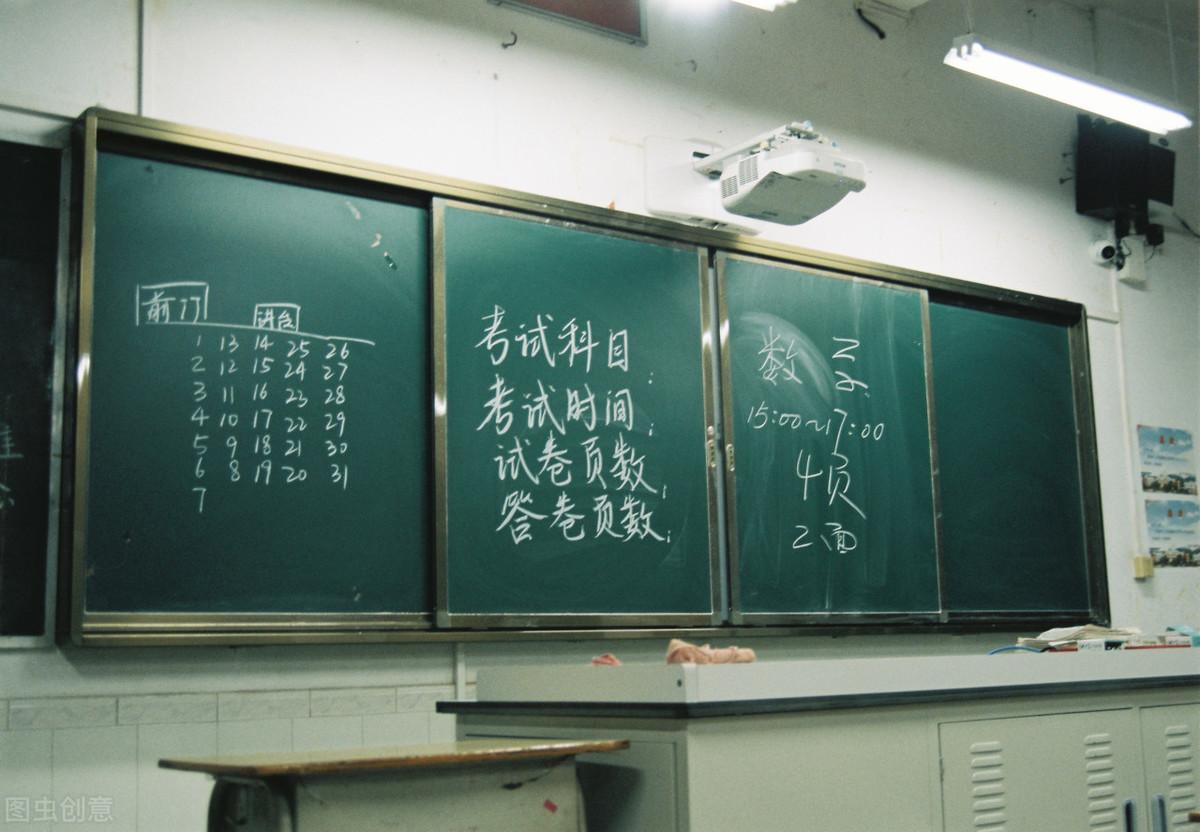 前门
讲台
1 13 14 25 26
2 12 15 24 27
3 11 16 23 28
4 10 17 22 29
5 9 18 21 30
6 8 19 20 31
7
考试科目:
考试时间:
试卷页数:
答卷页数:
数学
15:00~17:00
4页
2面
图虫创意